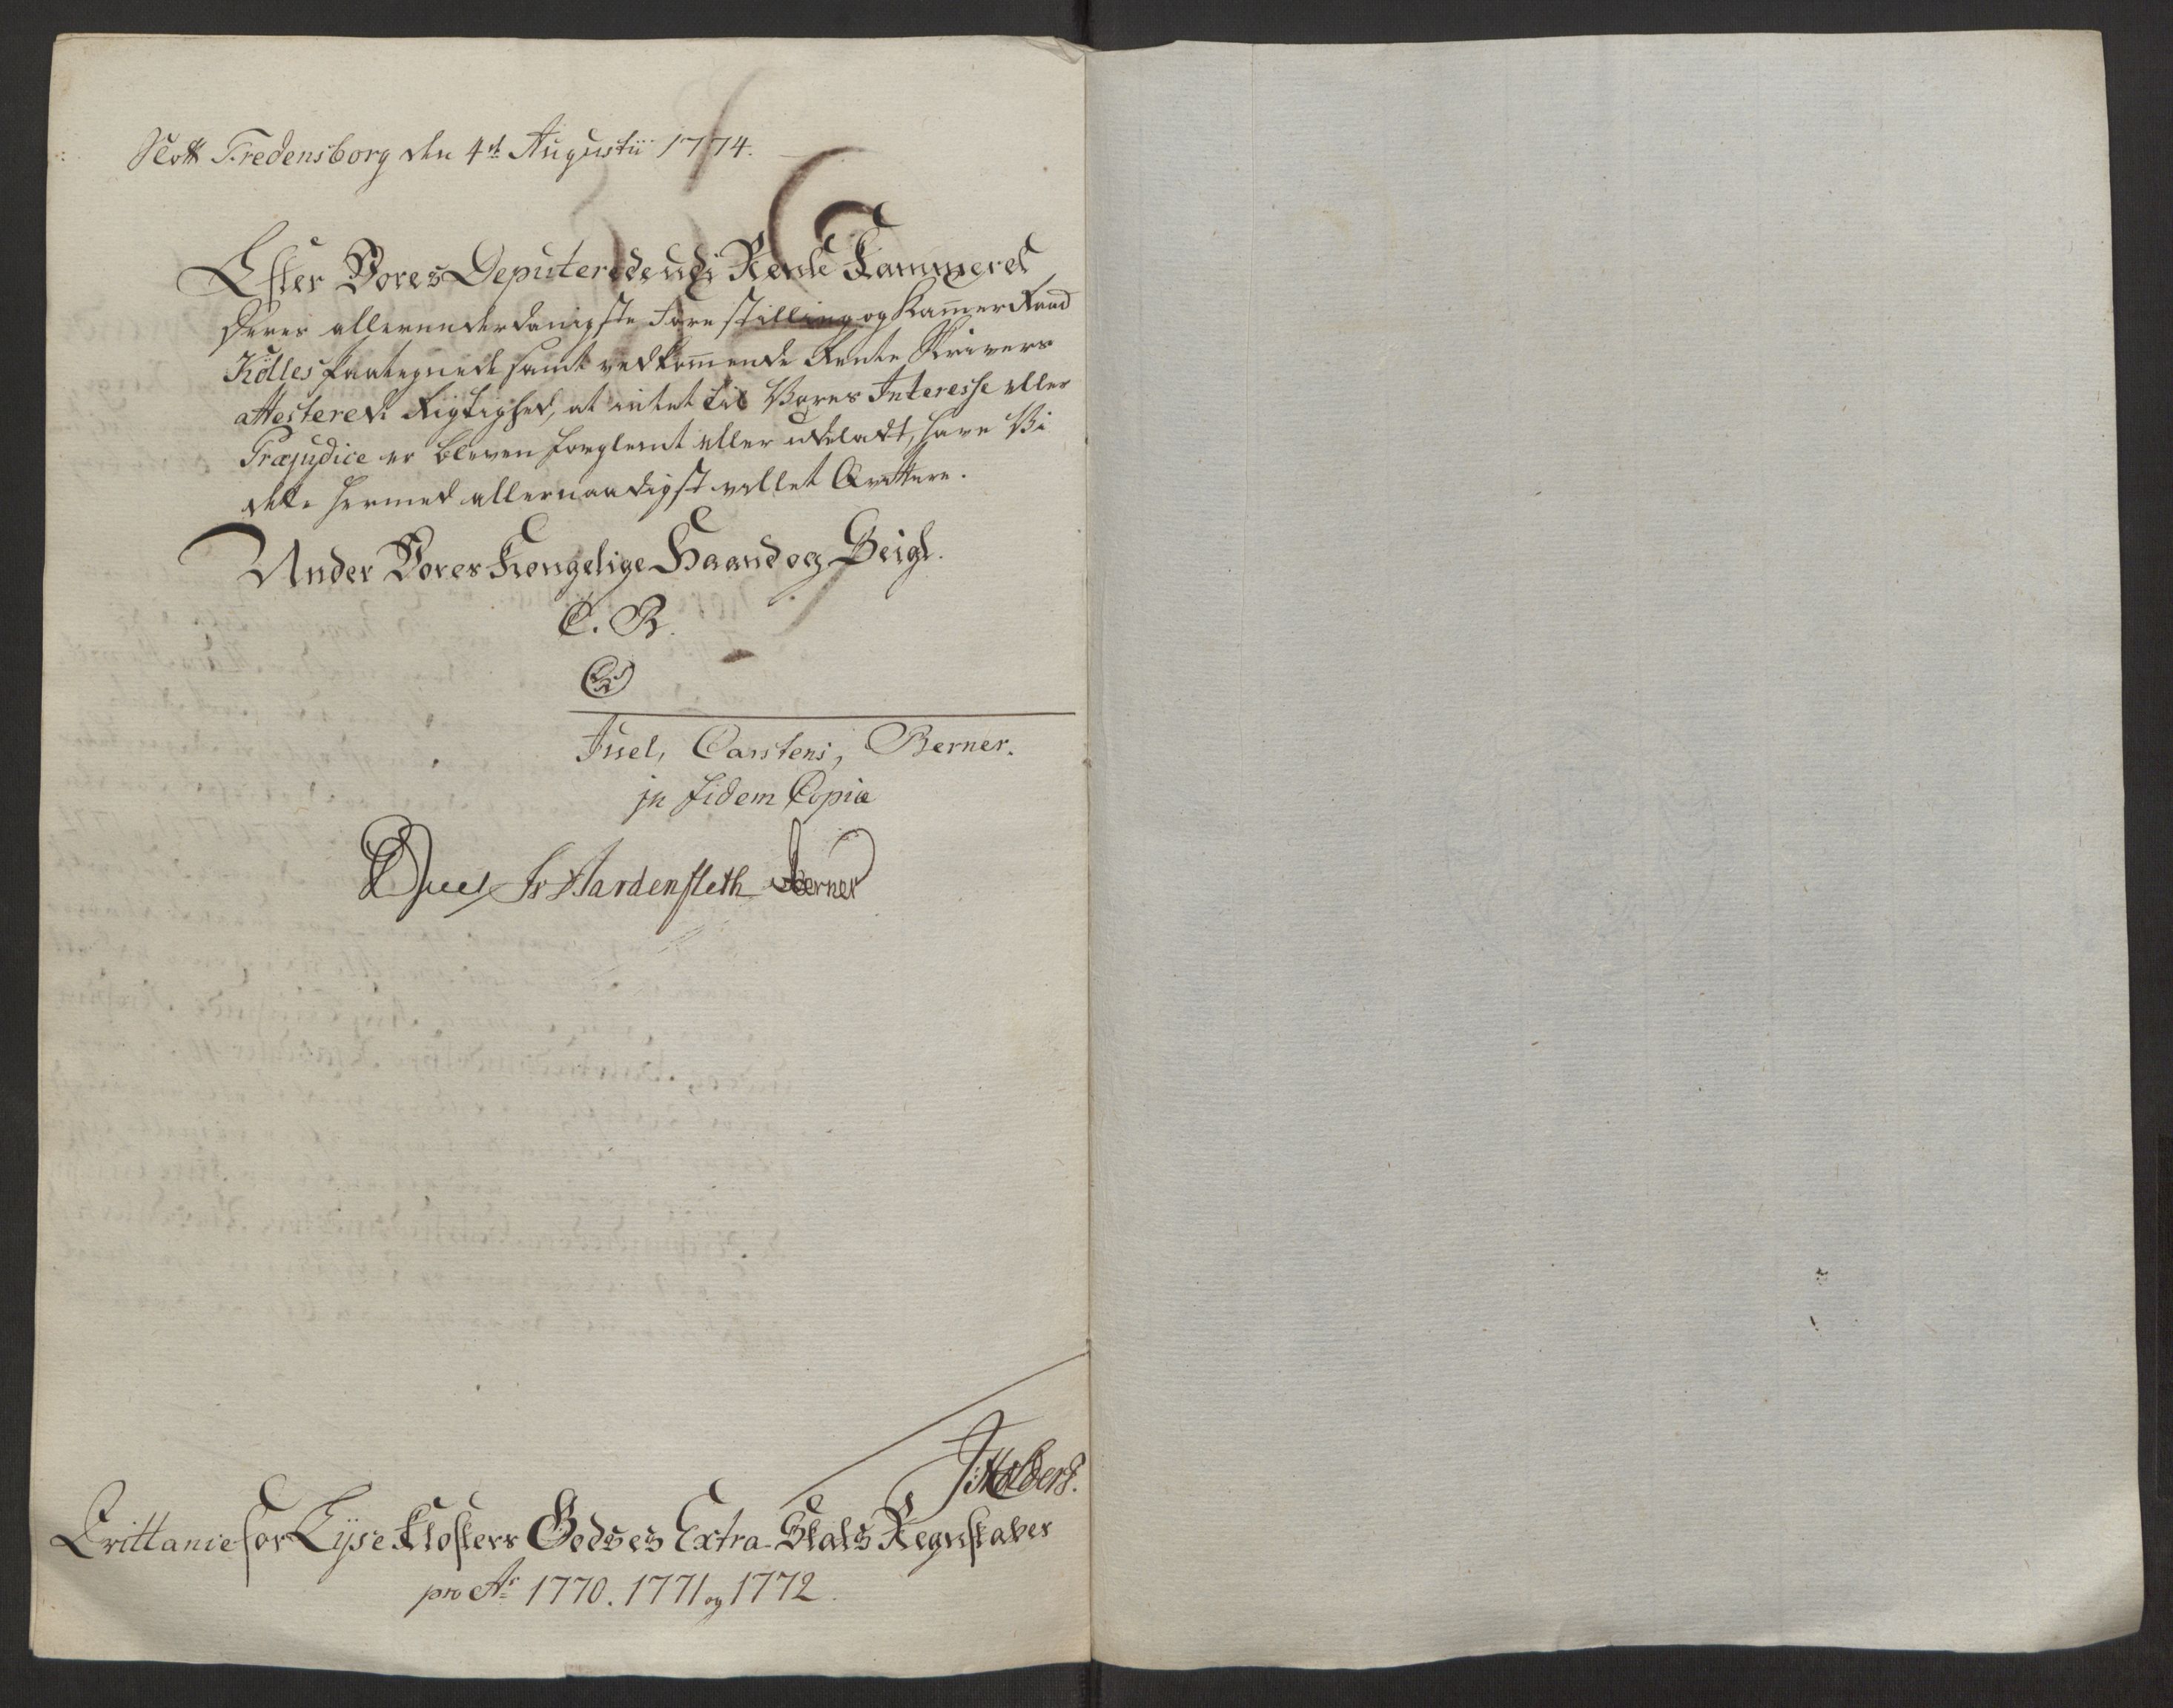 Slott Fredensborg den 4de Augustii 1774.
Efter Vores Deputerede udi Rente Kammeret
Deres allerunderdanigste Forestilling og Kam̅er Raad
Kölles paategnede samt vedkom̅ende Rente Skrivers
attesterede Rigtighed, at intet til Vores Interesse eller
Præjudice er bleven forglemt eller udeladt, have Vi
dette hermed allernaadigst villet Qvittere.
Under Vores Kongelige Haand og Seigl.
C. R.
Juel, Carstens, Berner.
in fidem Copiæ
Juel Fr Hardenfleth Berner
Qvittance for Lyse Klosters Godses Extra-Skats Regnskaber
pro Ao 1770. 1771 og 1772.